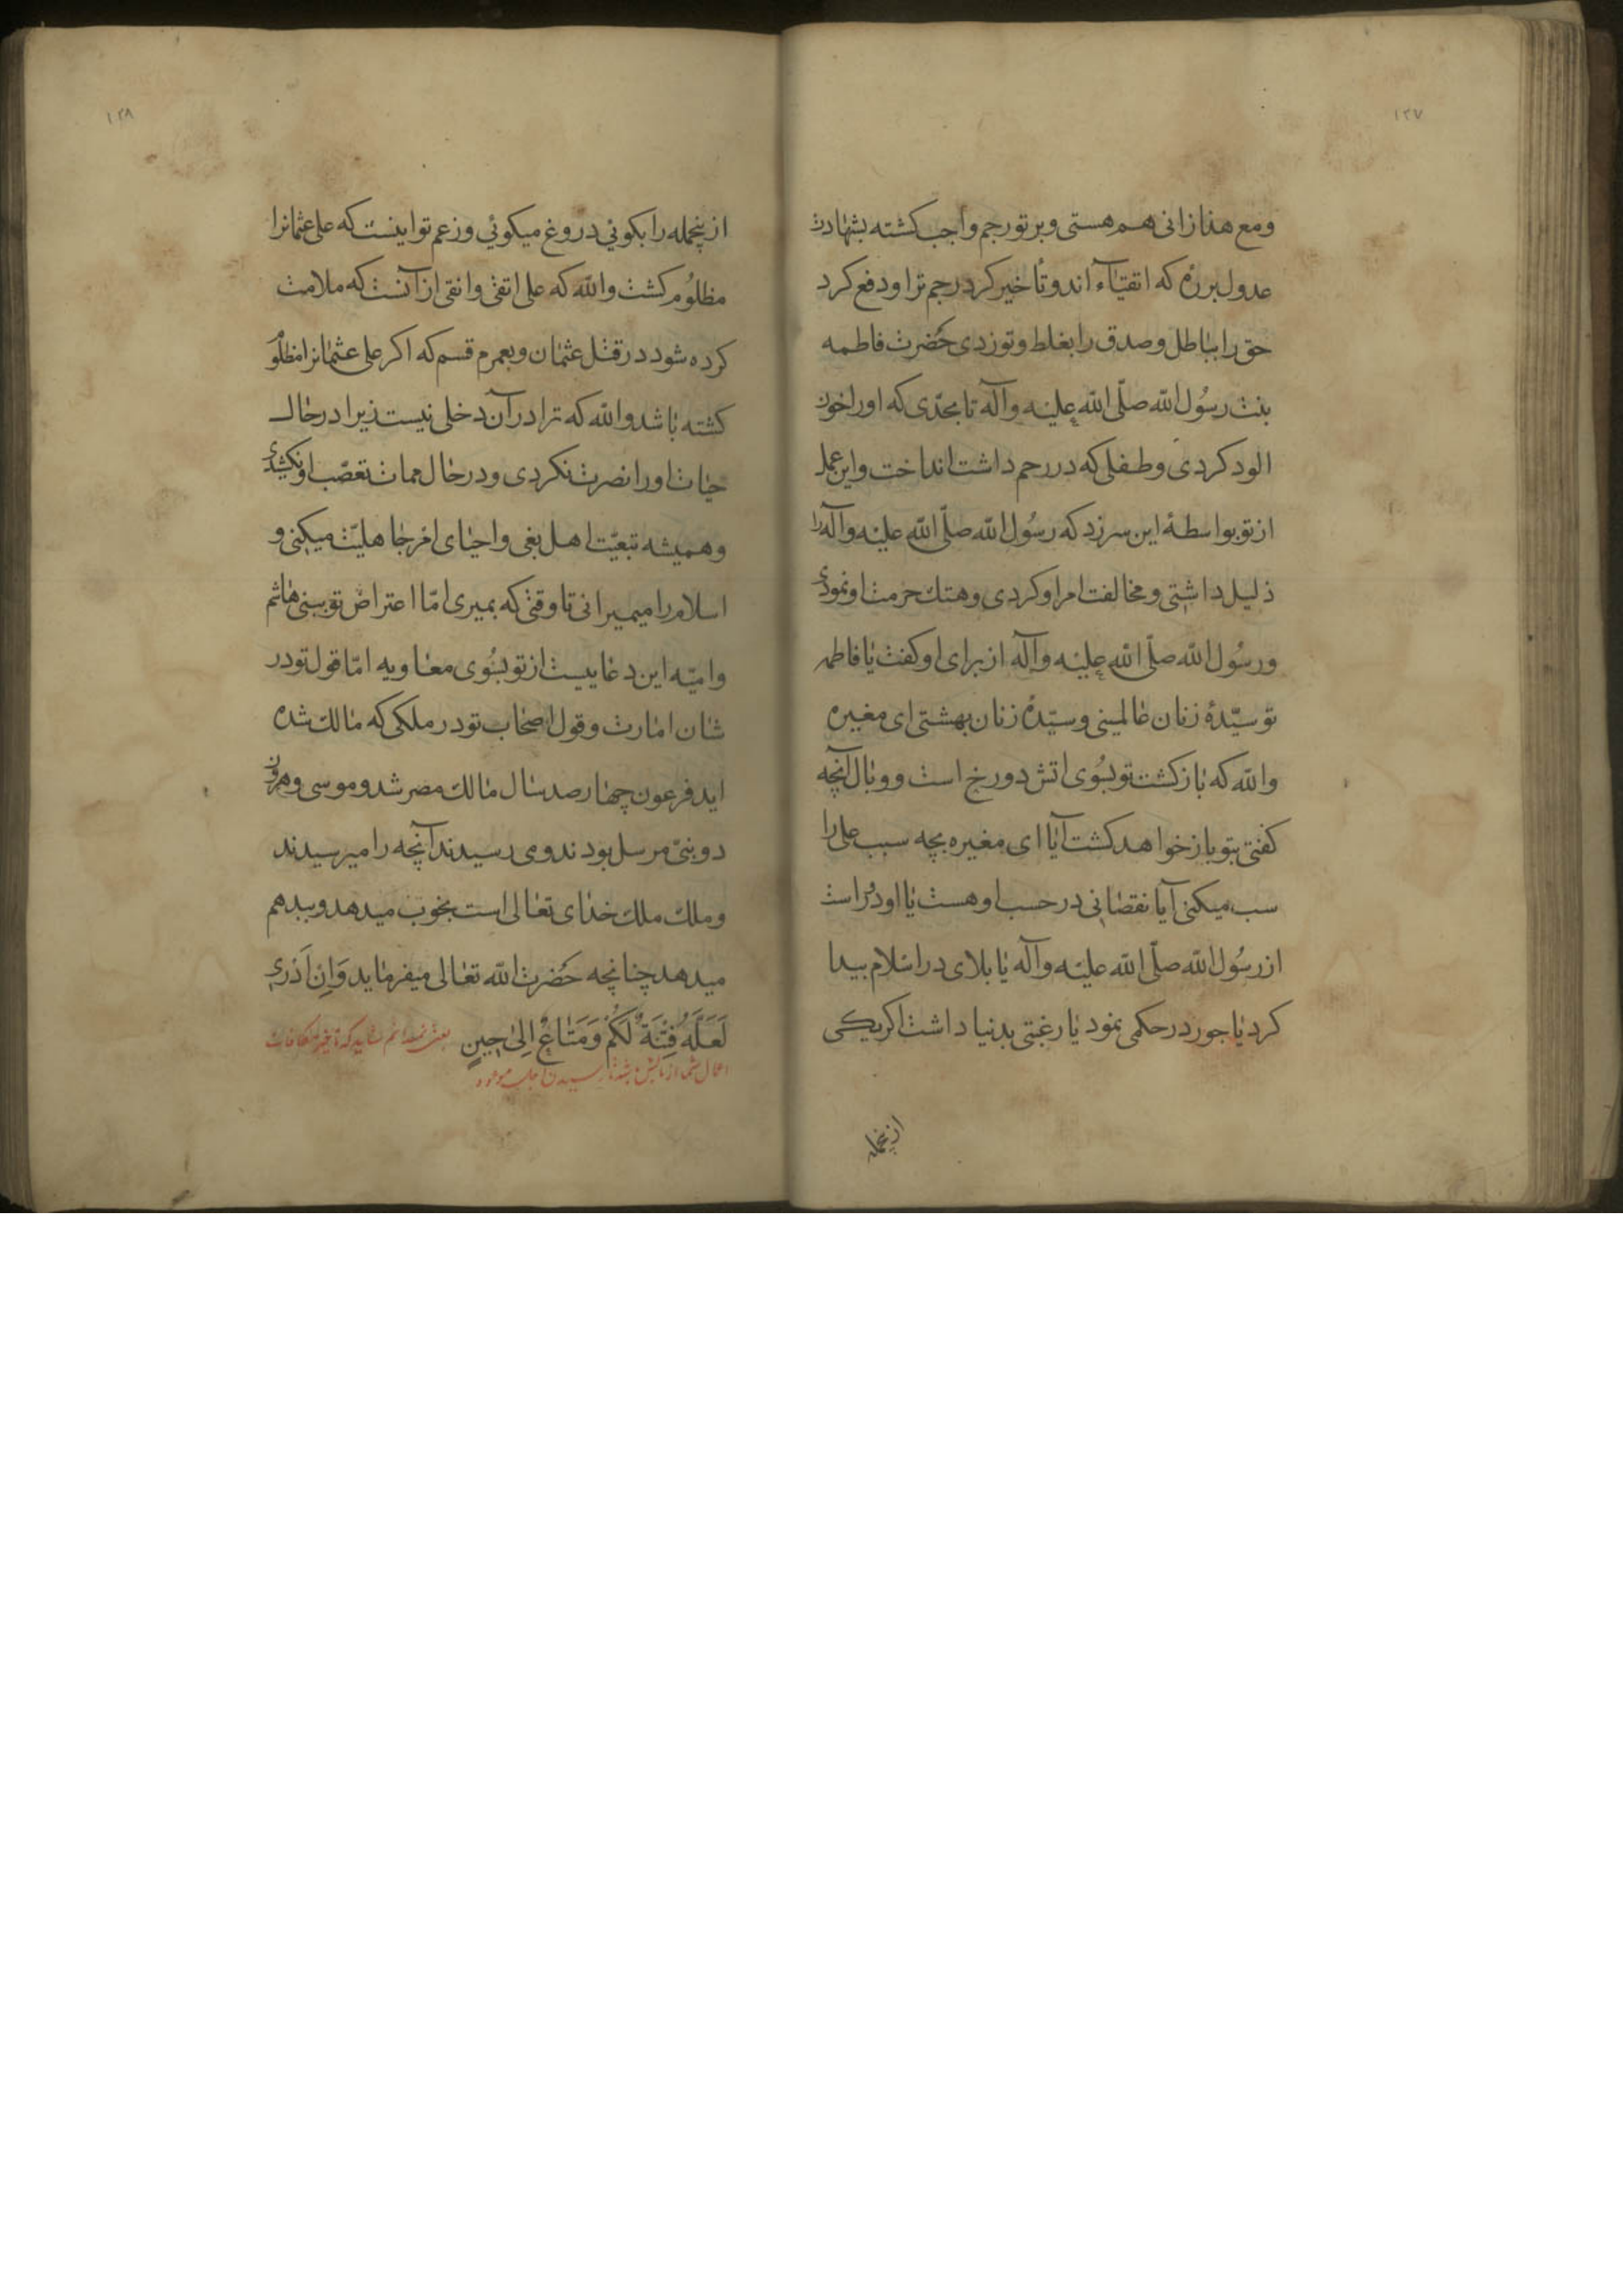 ١٢٧
ومع هذا زانی هم هستی وبر تو رجم واجب کشته بشهادت
عدول برره که اتقیاء اند و تأخیر کرد رجم ترا و دفع کرد
حق را بباطل وصدق را بغلط و تو زدی حضرت فاطمه
بنت رسول الله صلّی الله علیه وآله تا بحدّی که اورا خون
الود کردی وطفلی که در رحم داشت انداخت واین عمل
از تو بواسطهٔ این سرزد که رسول الله صلّی الله علیه وآله را
ذلیل داشتی ومخالفت امر او کردی وهتك حرمت او نمودی
ورسول الله صلّی الله علیه وآله از برای او کفت یا فاطمه
تو سیّدهٔ زنان عالمینی وسیّدهٔ زنان بهشتی ای مغیره
والله که بازکشت تو بسُوی اتش دورخ است و وبال آنچه
کفتی بتو باز خواهد کشت آیا ای مغیره بچه سبب علی را
سب میکنی آیا نقصانی در حسب او هست یا او دور است
از رسول الله صلّی الله علیه وآله یا بلای در اسلام پیدا
کرد یا جور در حکمی نمود یا رغبتی بدنیا داشت اکر یکی
از ینجمله
١٢٨
از ینجمله را بکوئی دروغ میکوئی وزعم تو اینست که علی عثمانرا
مظلوم کشت والله که علی اتقی وانقی از آنست که ملامت
کرده شود در قتل عثمان وبعمرم قسم که اکر علی عثمانرا مظلوم
کشته باشد والله که ترا در آن دخلی نیست زیرا در حال
حیات اورا نصرت نکردی ودر حال ممات تعصّب او نکشیدی
وهمیشه تبعیّت اهل بغی واحیای امر جاهلیّت میکنی و
اسلام را میمیرانی تا وقتی که بمیری امّا اعتراض تو ببنی هاشم
وامیّه این دعاییست از تو بسُوی معاویه امّا قول تو در
شان امارت وقول اصحاب تو در ملکی که مالك شده
اید فرعون چهارصد سال مالك مصر شد وموسی وهرون
دو نبیّ مرسل بودند ومی رسیدند آنچه را میرسیدند
وملك ملك خدای تعالی است بخوب میدهد وببد هم
میدهد چنانچه حضرت الله تعالی میفرماید وَاِن اَدری
لَعَلَّهُ فِتنَةٌ لَکُم وَمَتاعٌ اِلیٰ حینٍ یعنی نمیدانم شاید که تاخیر مکافات
اعمال شما ازمایش باشد تا رسیدن اجل موعود